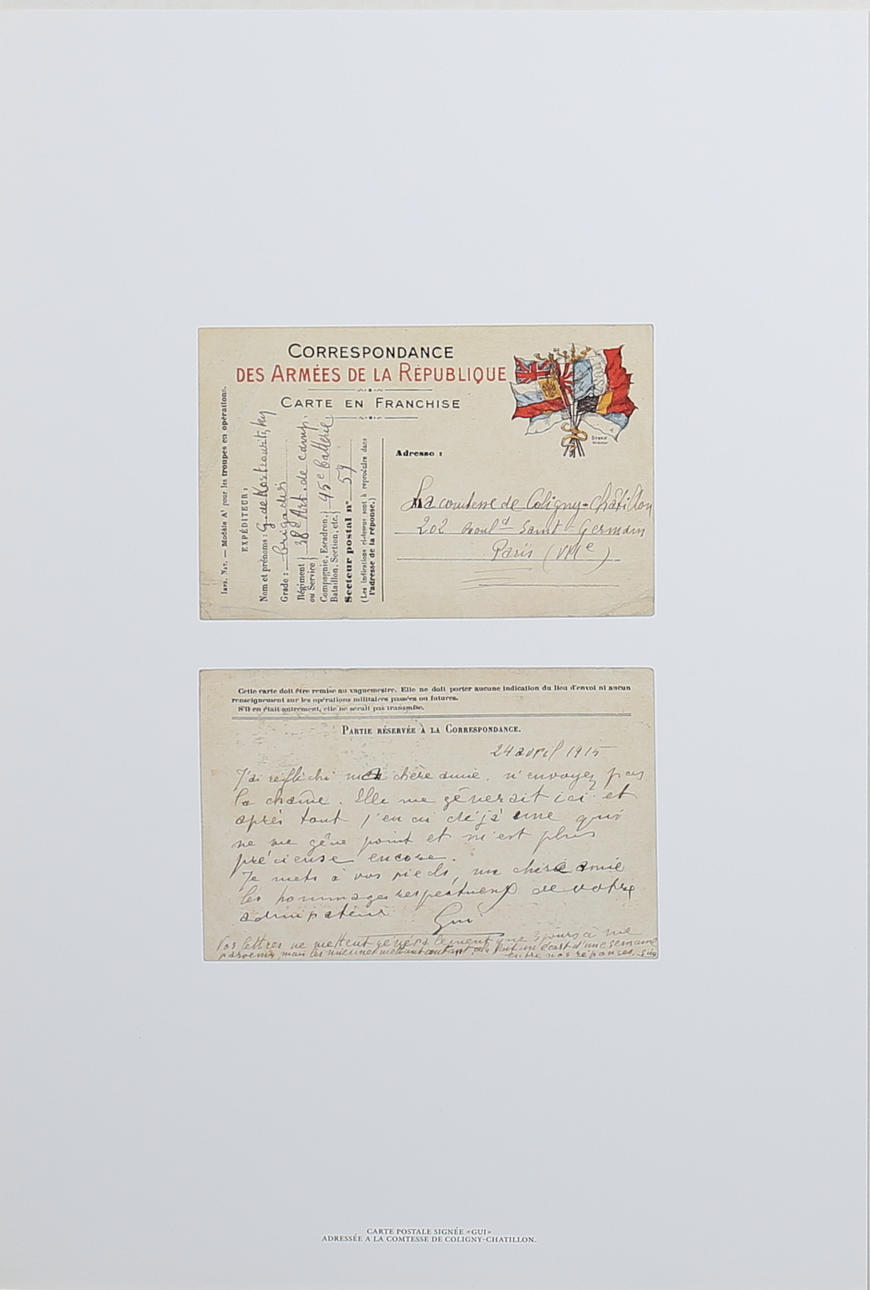 CORRESPONDANCE
DES ARMÉES DE LA RÉPUBLIQUE
CARTE EN FRANCHISE
Modèle A¹ pour les troupes en opérations.
EXPÉDITEUR:
Nom et prénoms: G. de Kostrowitzky
Grade: brigadier
Régiment 38e Art. de camp.
ou Service
Compagnie, Escadron, 45e batterie
Bataillon, Section, etc.
Secteur postal n° 59
(Les indications ci-dessus sont à reproduire dans
l'adresse de la réponse.)
Adresse :
La comtesse de Coligny-Châtillon
202 Boul d Saint Germain
Paris (VIIe)
Cette carte doit être remise au vaguemestre. Elle ne doit porter aucune indication du lieu d'envoi ni aucun
renseignement sur les opérations militaires passées ou futures.
S'il en était autrement, elle ne serait pas transmise.
PARTIE RÉSERVÉE À LA CORRESPONDANCE.
24 avril 1915
J'ai réfléchi ma chère amie, n'envoyez pas
la chaîne. Elle me gênerait ici et
après tout j'en ai déjà une qui
ne me gêne point et m'est plus
précieuse encore.
Je mets à vos pieds, ma chère amie
les hommages respectueux de votre
admirateur Gui
Vos lettres ne mettent généralement que 3 jours à me
parvenir mais les miennes mettant autant cela fait un écart d'une semaine
entre nos réponses.
CARTE POSTALE SIGNÉE «GUI»
ADRESSÉE A LA COMTESSE DE COLIGNY-CHATILLON.